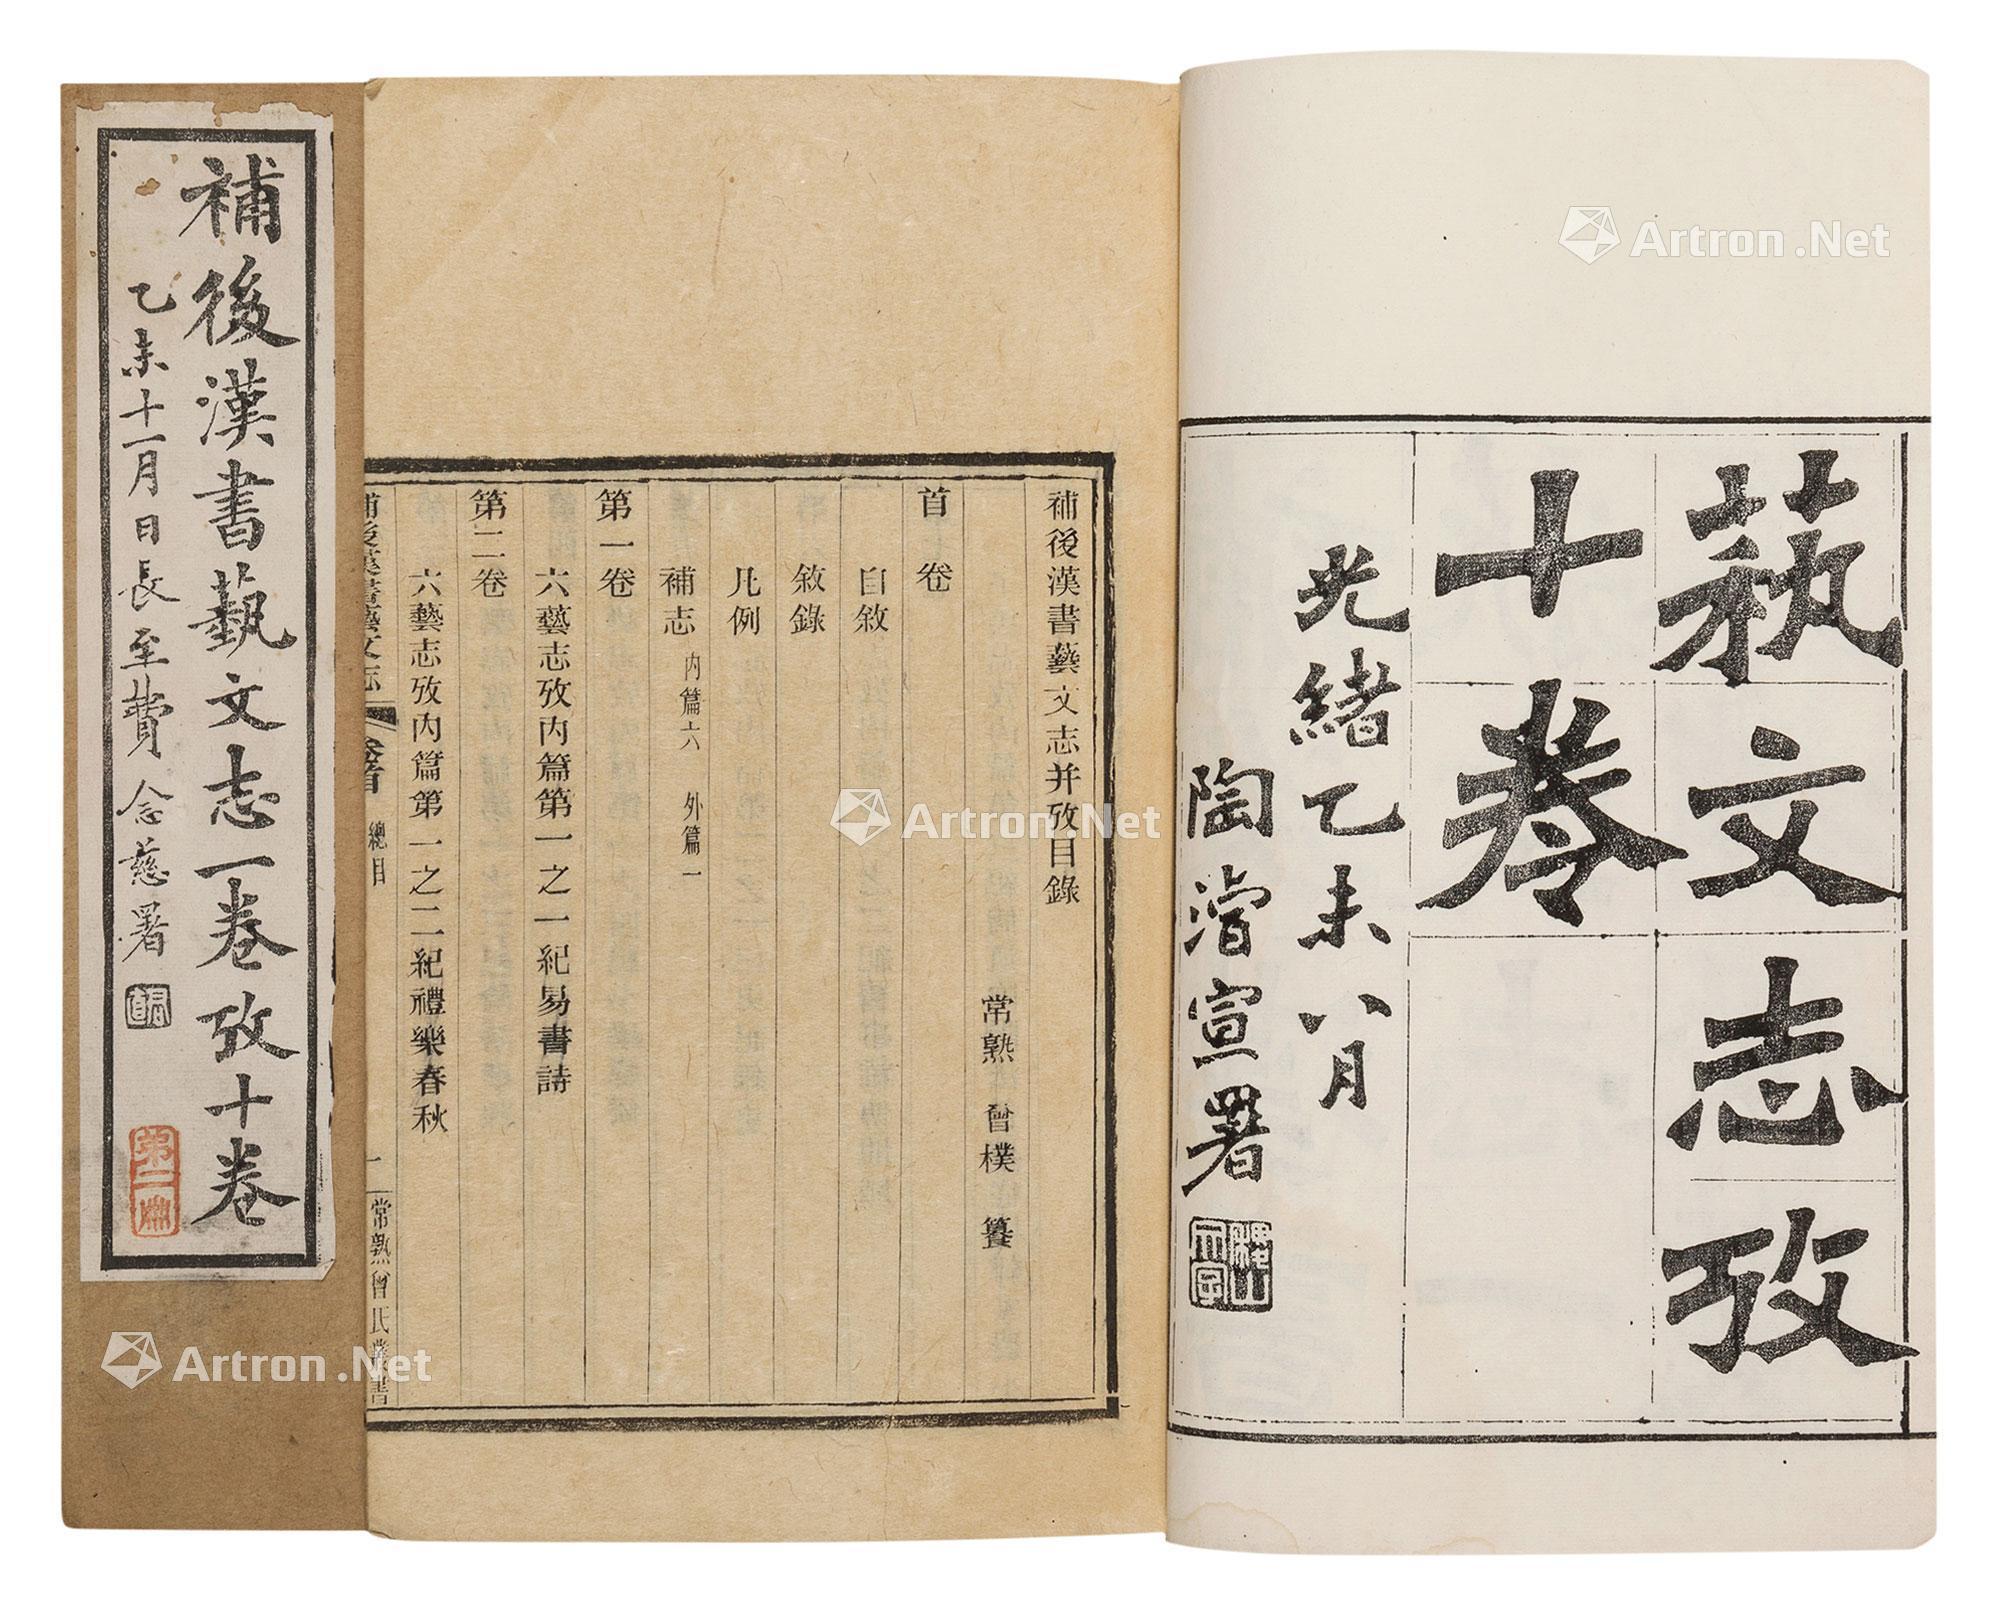 藝文志攷
十卷
光緒乙未八月
陶濬宣署
補後漢書藝文志并攷目錄
常熟 曾樸 纂
首卷
自敘
敘錄
凡例
補志 內篇六 外篇一
第一卷
六藝志攷內篇第一之一紀易書詩
第二卷
六藝志攷內篇第一之二紀禮樂春秋
補後漢書藝文志 卷首 總目 一 常熟曾氏叢書
補後漢書藝文志一卷攷十卷
乙未十一月日長至費念慈署
第二冊
Artron.Net
Artron.Net
Artron.Net